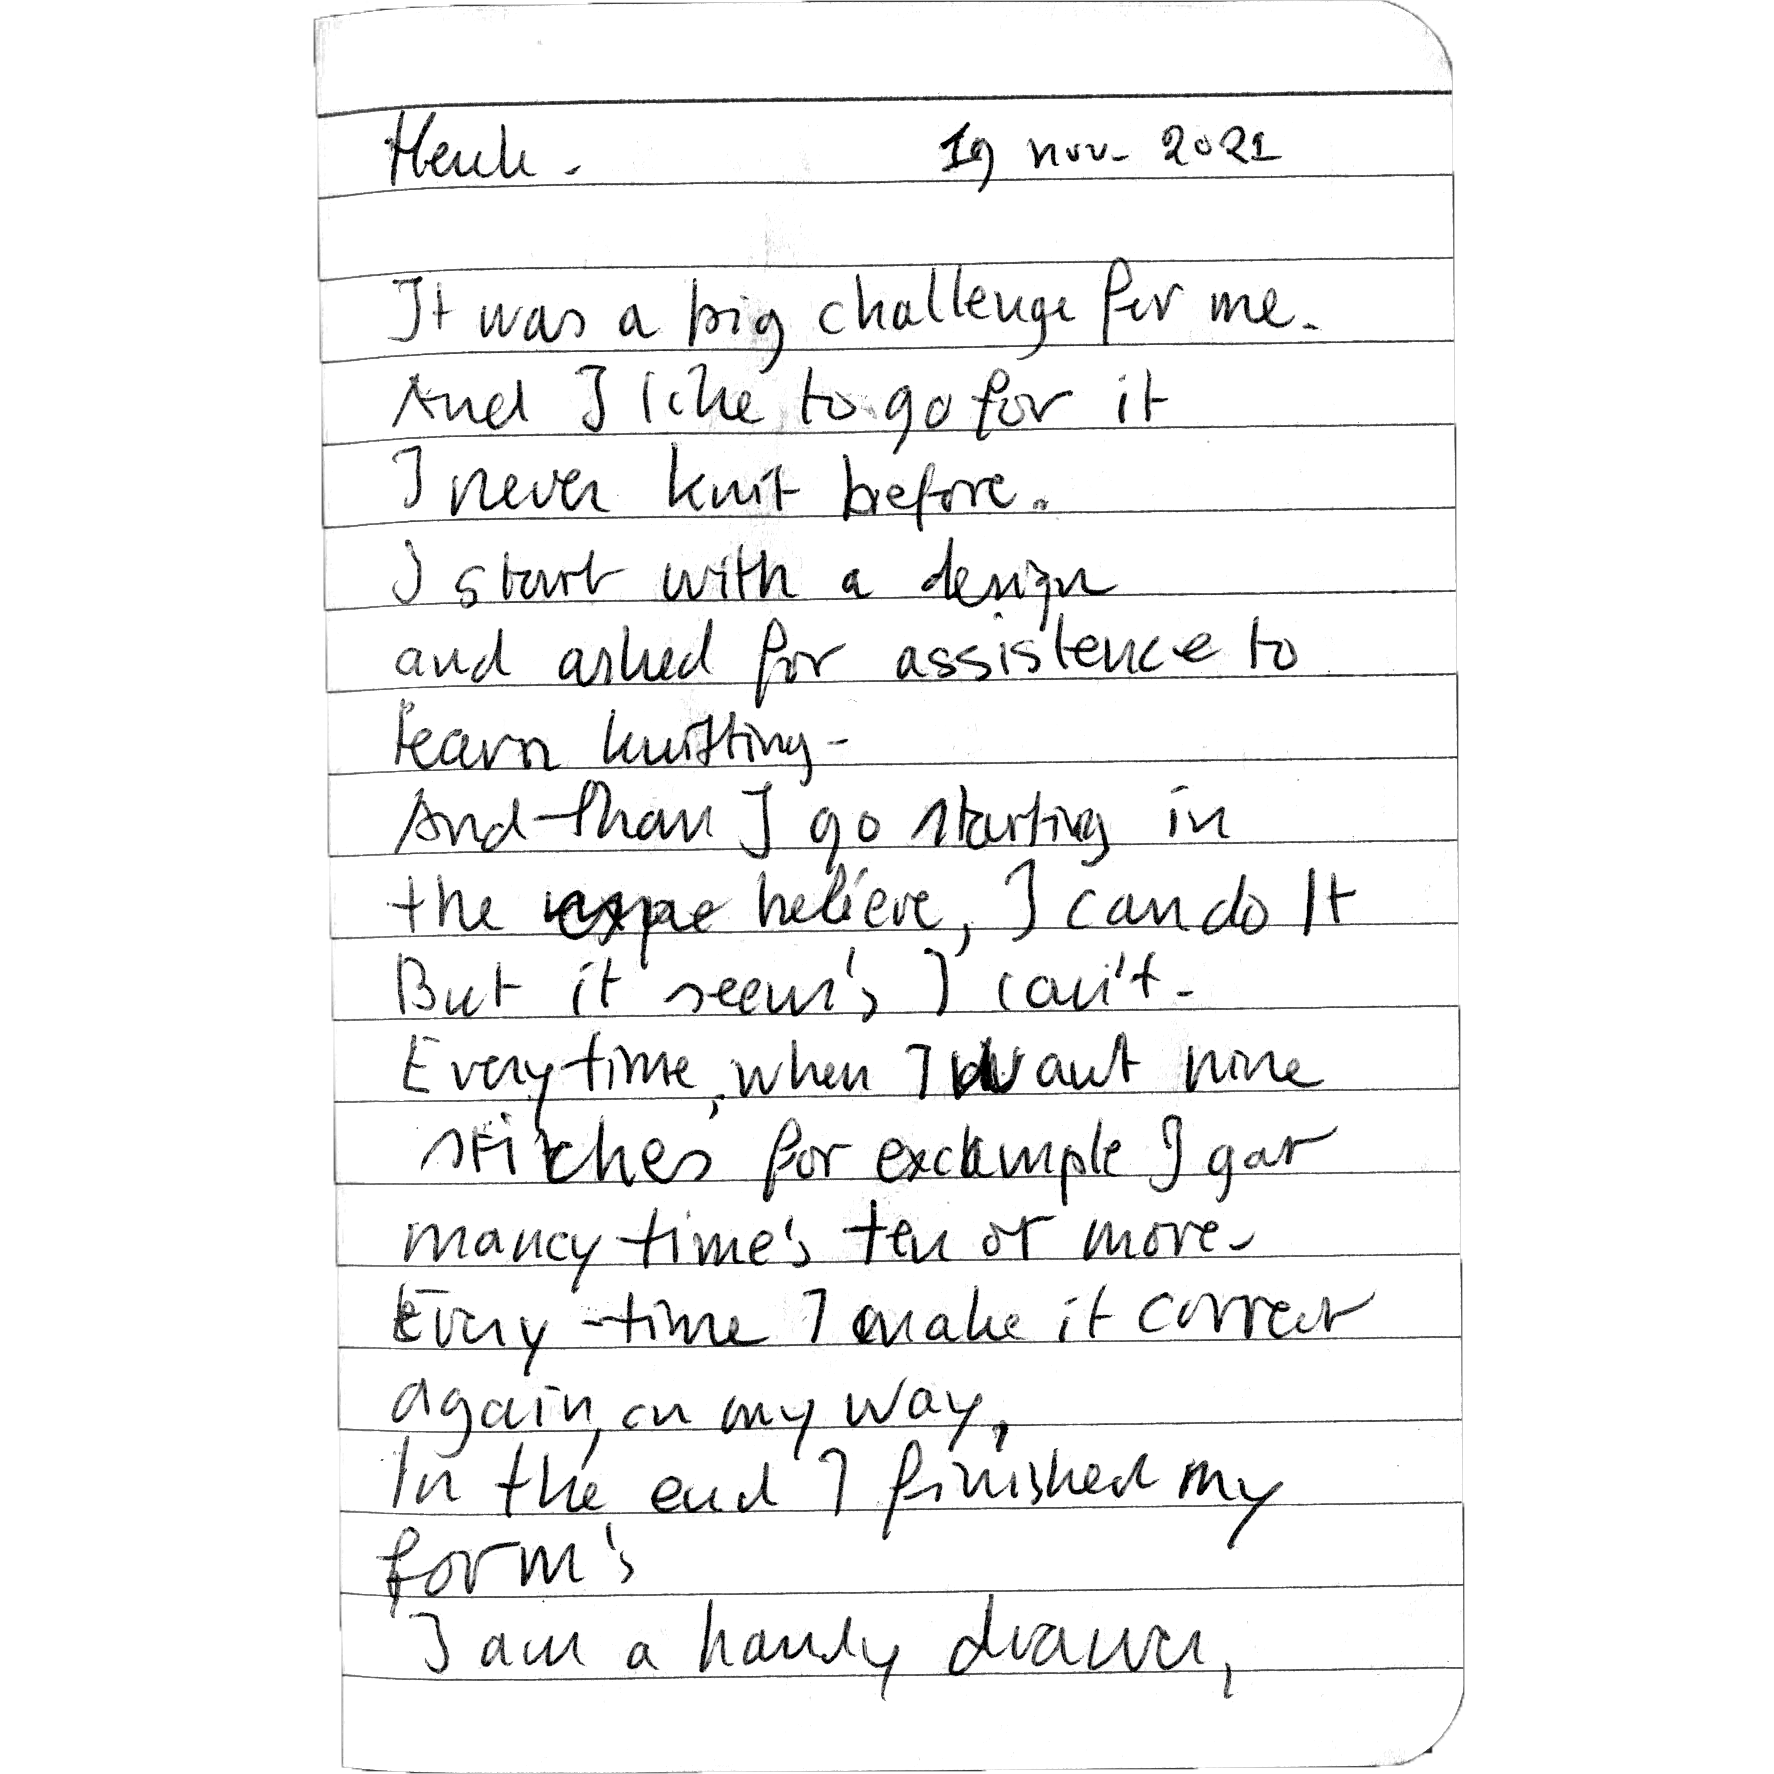 Henk. 19 nov. 2021
It was a big challenge for me.
And I like to go for it
I never knit before.
I start with a design
and asked for assistence to
learn knitting-
And than I go starting in
the believe, I can do It
But it seem's I can't.
Every time, when I want nine
stitches for example I got
many time's ten or more.
Every time I make it correct
again, on my way,
In the end I finished my
form's
I am a handy drawer,